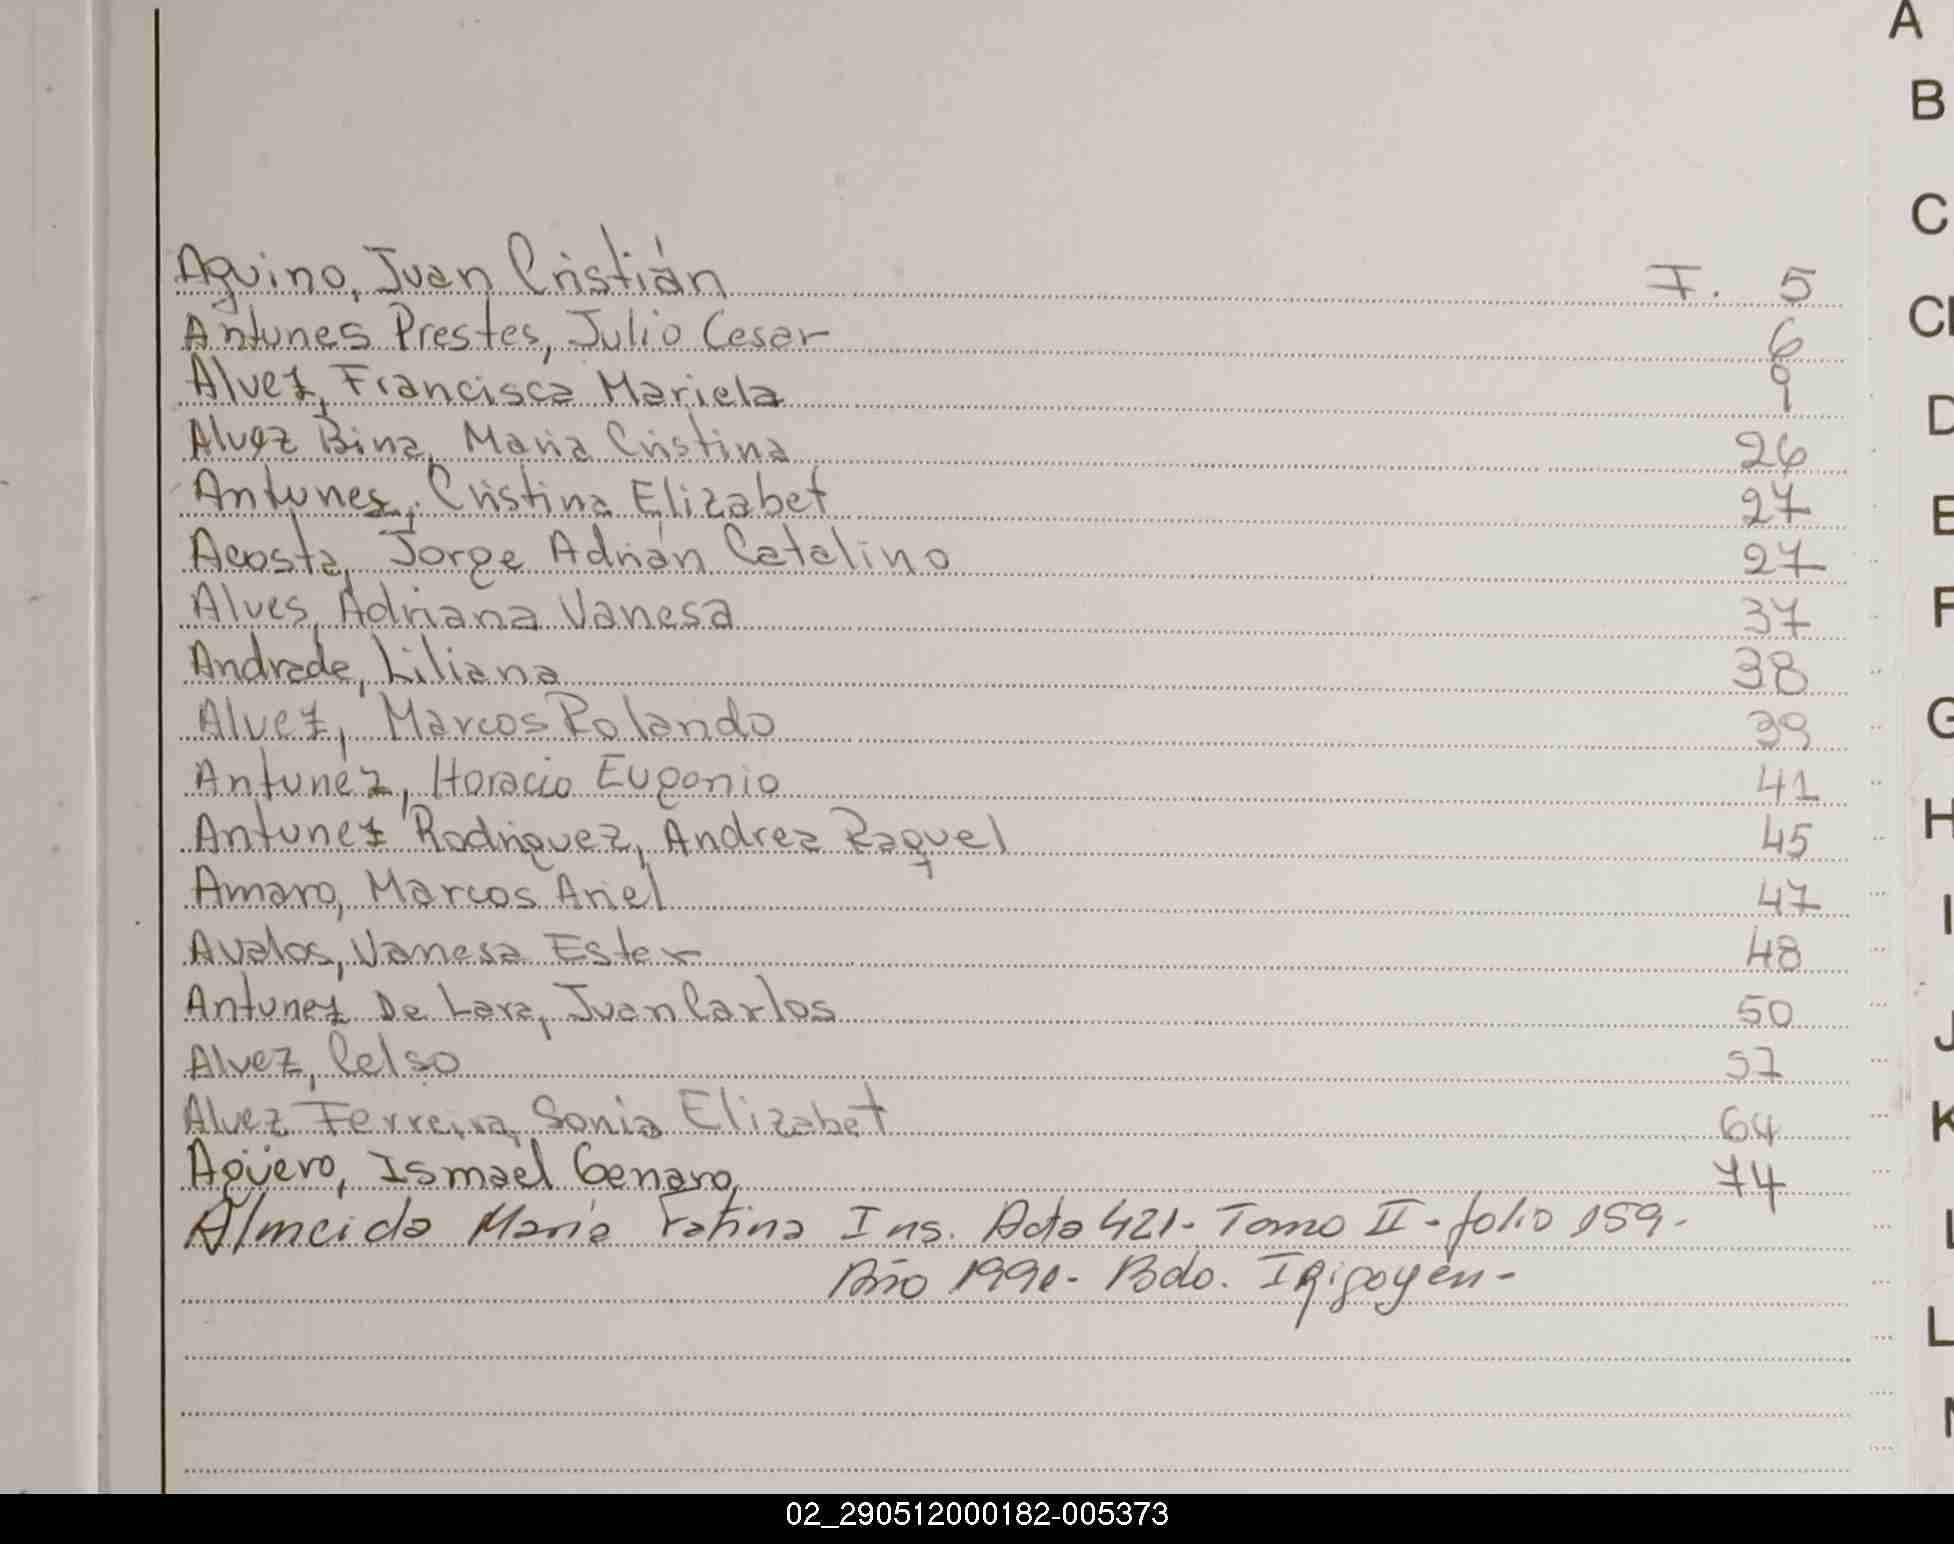 A
B
C
D
E
F
G
H
I
J
K
L
Aquino, Juan Cristián F. 5
Antunes Prestes, Julio Cesar 6
Alvez, Francisca Mariela 9
Alvez Bina, Maria Cristina 26
Antunes, Cristina Elizabet 27
Acosta, Jorge Adrián Catalino 27
Alves, Adriana Vanesa 37
Andrade, Liliana 38
Alvez, Marcos Rolando 39
Antunez, Horacio Eugenio 41
Antunez Rodriguez, Andrea Raquel 45
Amaro, Marcos Ariel 47
Avalos, Vanesa Ester 48
Antunez De Lara, Juan Carlos 50
Alvez, Celso 57
Alvez Ferreira, Sonia Elizabet 64
Agüero, Ismael Genaro 74
Almeida Maria Fatina Ins. Acta 421- Tomo II - folio 159-
Año 1990- Bdo. Irigoyen-
02_290512000182-005373